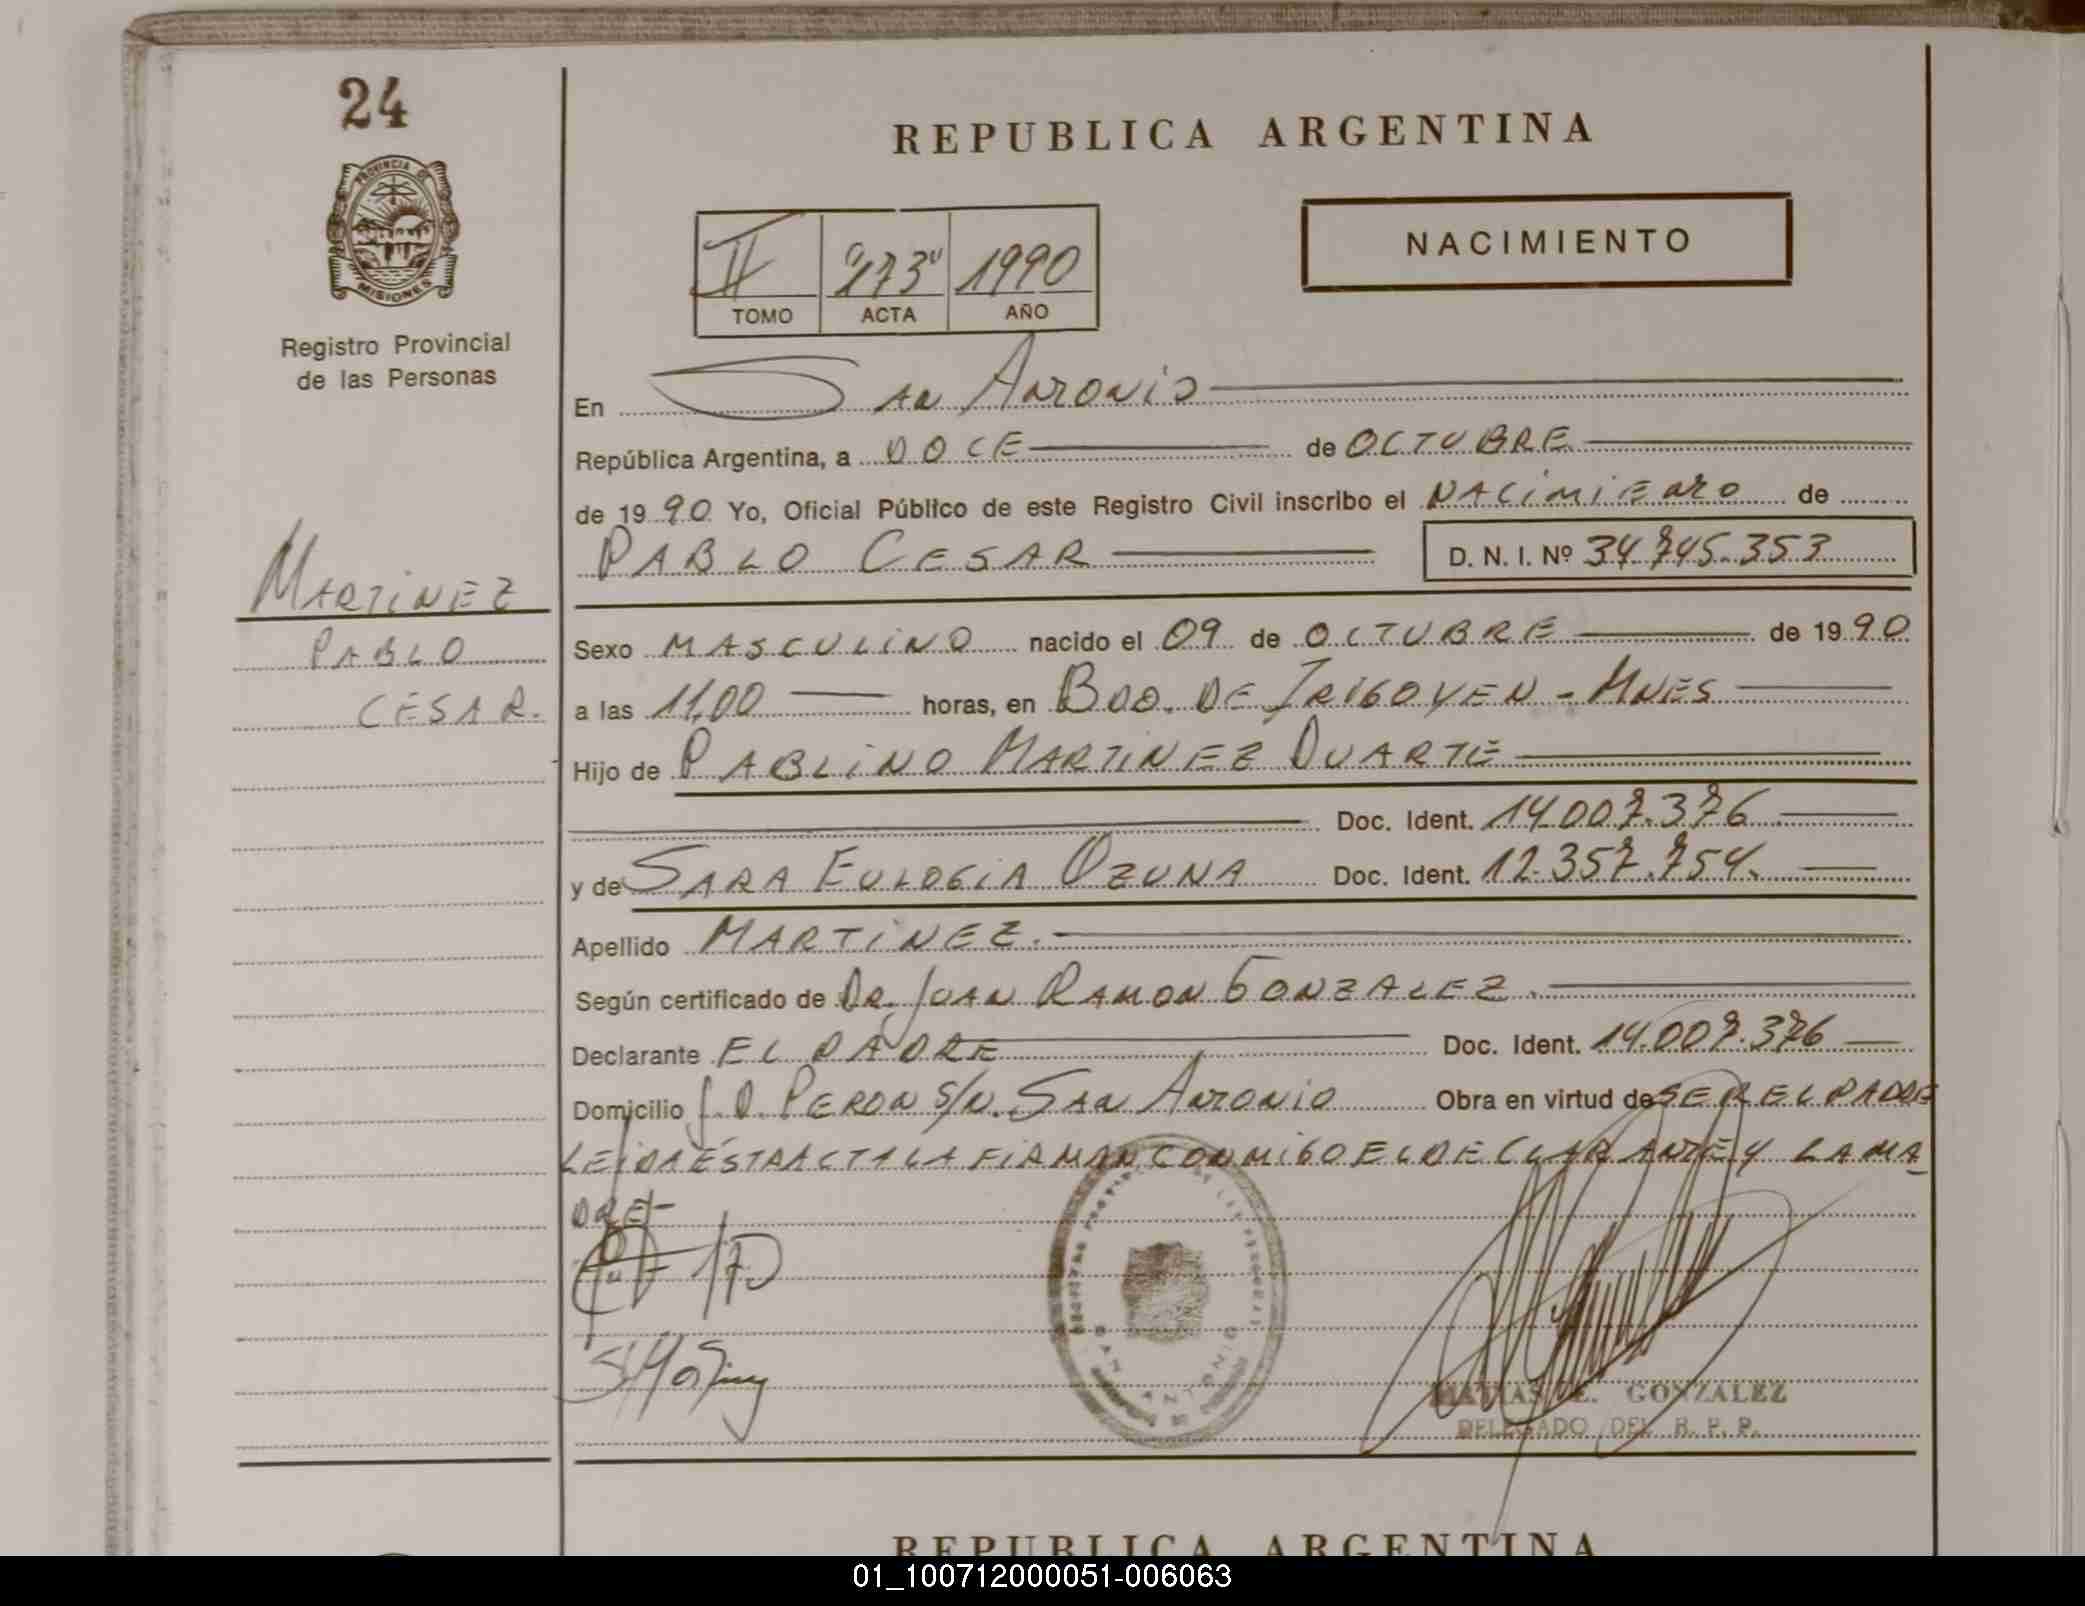 24
PROVINCIA DE
MISIONES
Registro Provincial
de las Personas
MARTINEZ
PABLO
CESAR.
REPUBLICA ARGENTINA
NACIMIENTO
II "173" 1990
TOMO ACTA AÑO
En SAN ANTONIO
República Argentina, a DOCE de OCTUBRE
de 1990 Yo, Oficial Público de este Registro Civil inscribo el NACIMIENTO de
PABLO CESAR D. N. I. Nº 34.745.353
Sexo MASCULINO nacido el 09 de OCTUBRE de 1990
a las 11,00 horas, en BDO. DE IRIGOYEN - MNES
Hijo de PABLINO MARTINEZ DUARTE
Doc. Ident. 14.007.376
y de SARA EULOGIA OZUNA Doc. Ident. 12.357.754.
Apellido MARTINEZ.
Según certificado de DR. JUAN RAMON GONZALEZ.
Declarante EL PADRE Doc. Ident. 14.007.376
Domicilio J. D. PERON S/N. SAN ANTONIO Obra en virtud de SER EL PADRE
LEIDA ESTA ACTA LA FIRMAN CONMIGO EL DECLARANTE Y LA MA-
DRE-
SAN ANTONIO
MATIAS E. GONZALEZ
DELEGADO DEL R. P. P.
REPUBLICA ARGENTINA
01_100712000051-006063